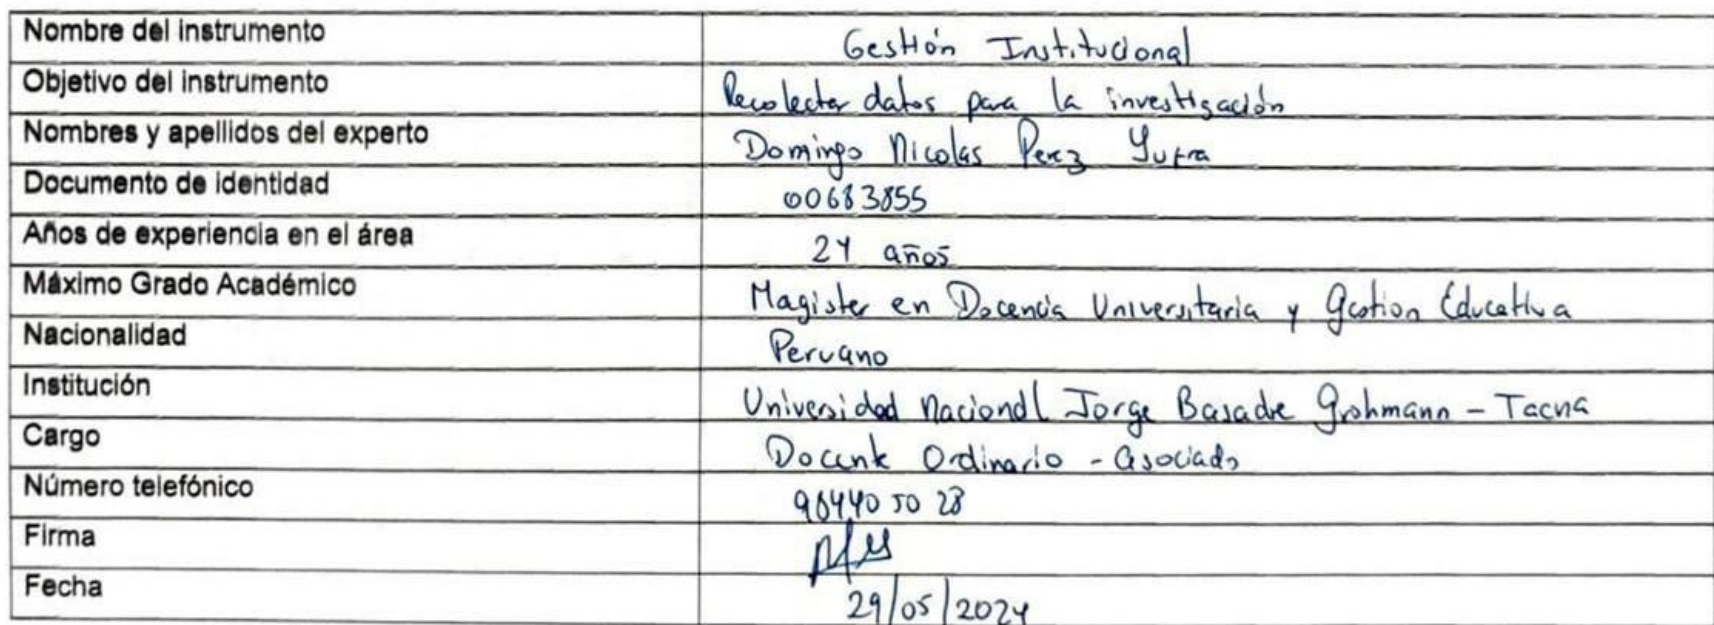 Nombre del instrumento Gestión Institucional
Objetivo del instrumento Recolectar datos para la investigación
Nombres y apellidos del experto Domingo Nicolas Perez Yufra
Documento de identidad 00683855
Años de experiencia en el área 24 años
Máximo Grado Académico Magister en Docencia Universitaria y Gestion Educativa
Nacionalidad Peruano
Institución Universidad Nacional Jorge Basadre Grohmann - Tacna
Cargo Docente Ordinario - Asociado
Número telefónico
Firma
Fecha 29/05/2024